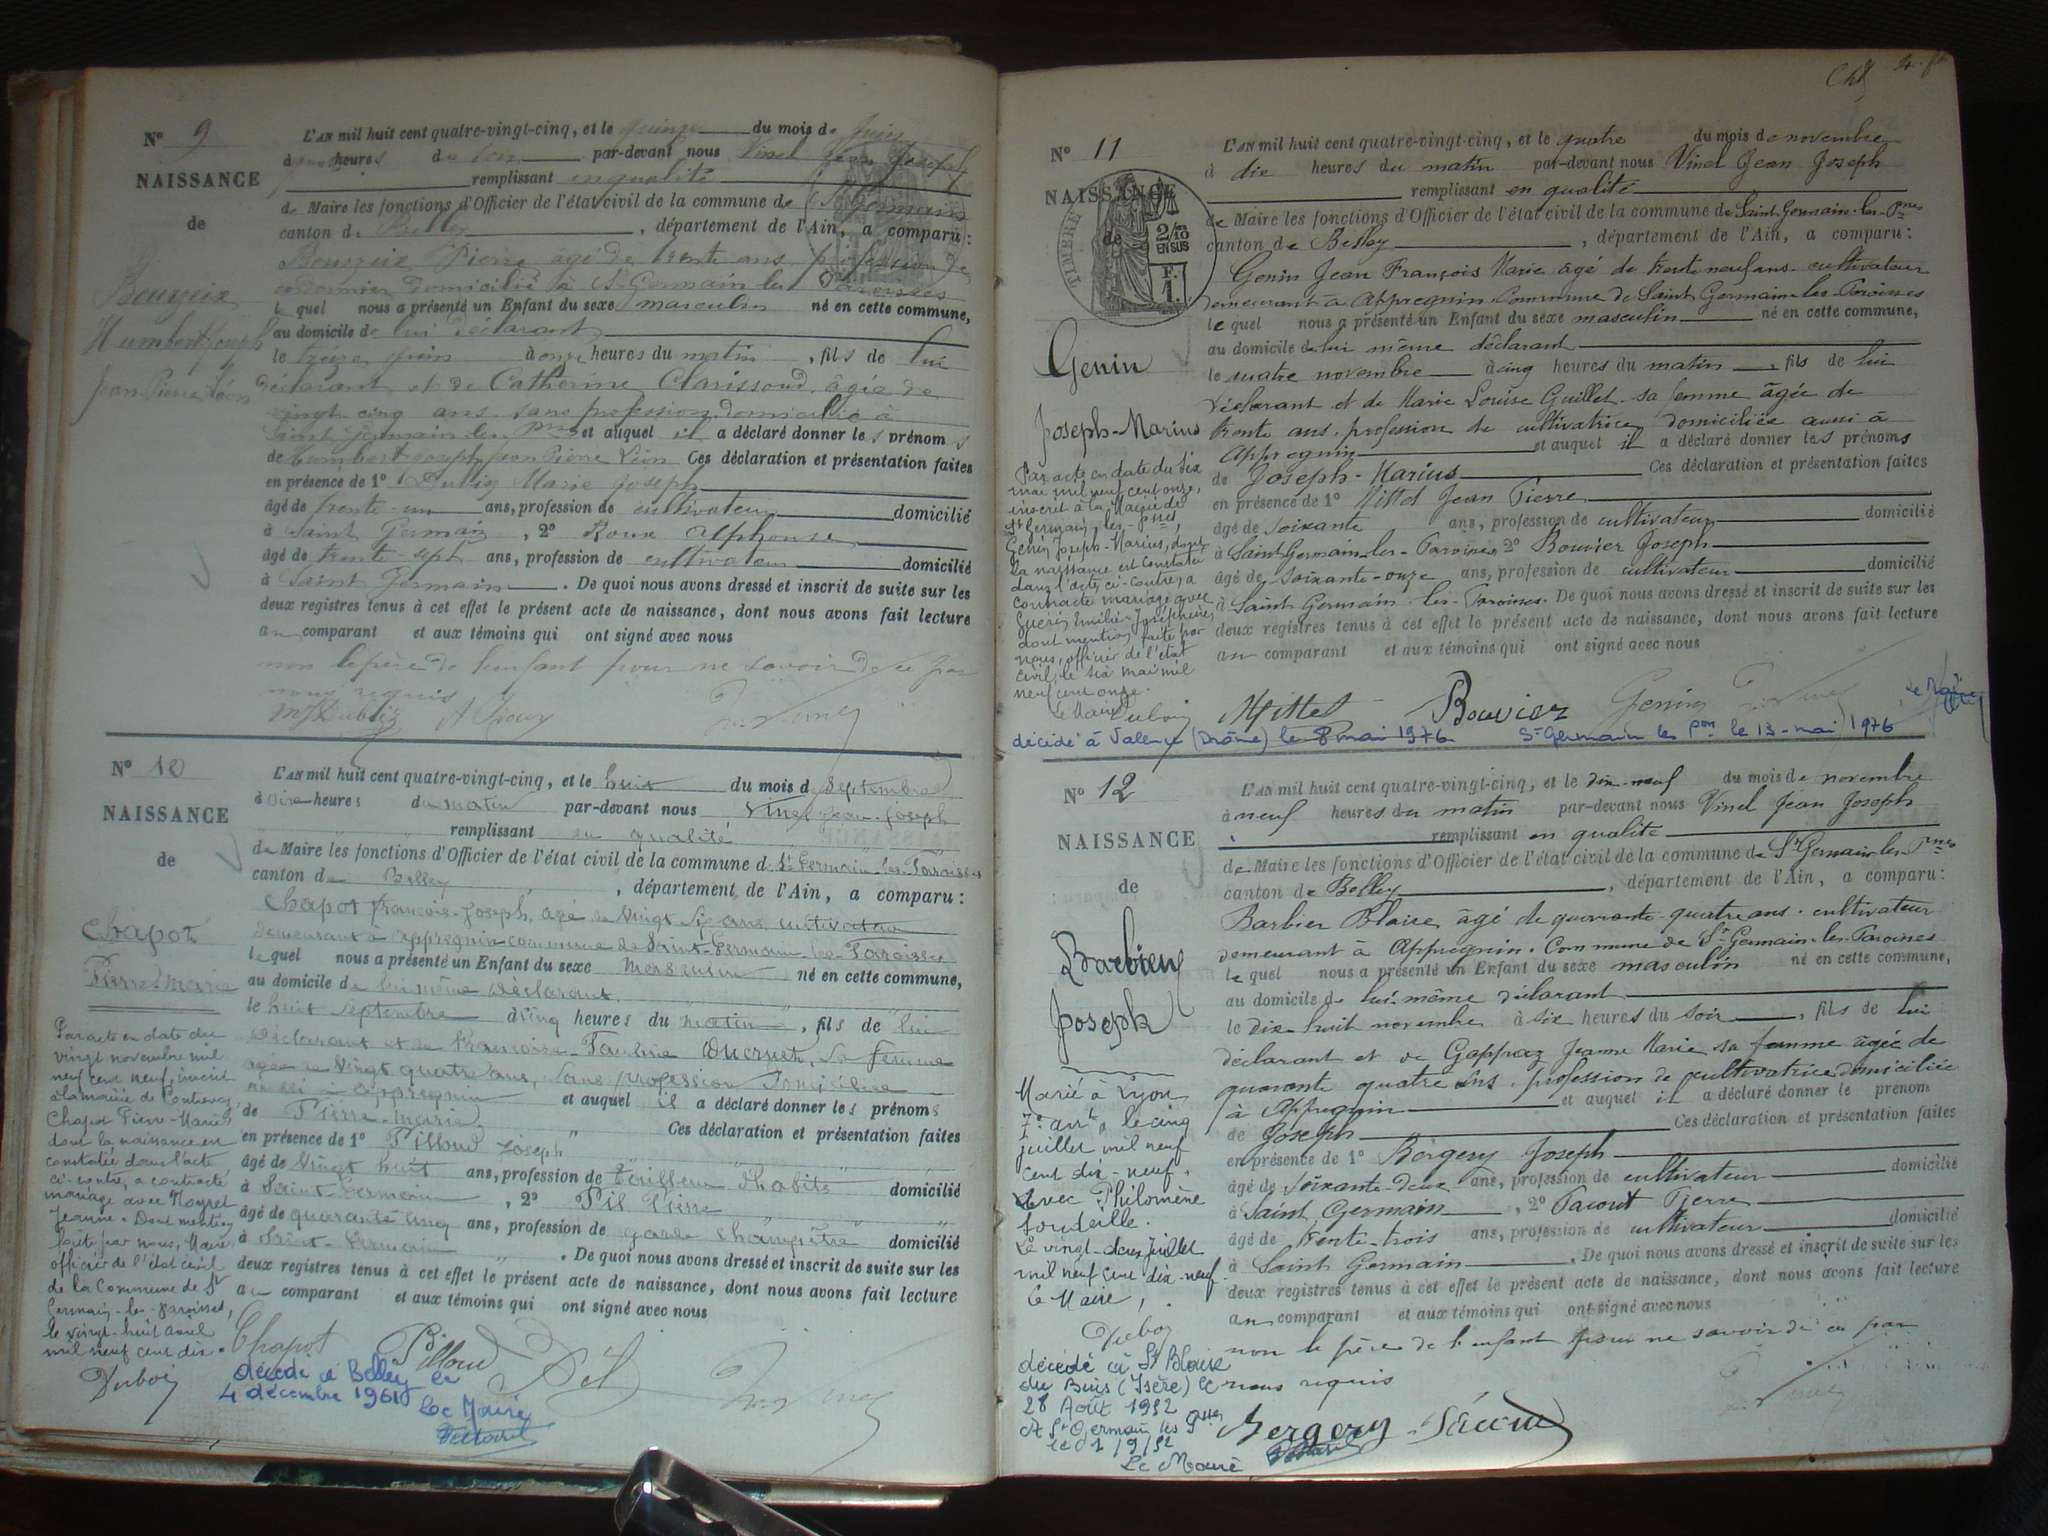 N° 9
NAISSANCE
de
Bouzeix
Humbert Joseph
Jean Pierre Léon
L'AN mil huit cent quatre-vingt-cinq, et le quinze du mois de juin
à heures du soir par-devant nous Vinel Jean Joseph
remplissant en qualité
de Maire les fonctions d'Officier de l'état civil de la commune de St Germain
canton de Belley, département de l'Ain, a comparu :
Bouzeix Pierre âgé de trente ans profession de
cordonnier domicilié à St Germain les Paroisses
lequel nous a présenté un Enfant du sexe masculin né en cette commune,
au domicile de lui déclarant
le treize juin à onze heures du matin, fils de lui
déclarant et de Catherine Clarissoud âgée de
vingt cinq ans sans profession domiciliée à
Saint Germain les Pses et auquel il a déclaré donner les prénoms
de Humbert Joseph Jean Pierre Léon Ces déclaration et présentation faites
en présence de 1° Dubiz Marie Joseph
âgé de trente-un ans, profession de cultivateur domicilié
à Saint Germain, 2° Roux Alphonse
âgé de trente-sept ans, profession de cultivateur domicilié
à Saint Germain. De quoi nous avons dressé et inscrit de suite sur les
deux registres tenus à cet effet le présent acte de naissance, dont nous avons fait lecture
au comparant et aux témoins qui ont signé avec nous
non le père de l'enfant pour ne savoir de ce par
nous requis
N° 10
NAISSANCE
de
Chapot
Pierre-Marie
Par acte en date du
vingt novembre mil
neuf cent neuf, inscrit
à la mairie de Contrevoz,
Chapot Pierre-Marie,
dont la naissance est
constatée dans l'acte
ci-contre, a contracté
mariage avec Moyret
Jeanne. Dont mention
faite par nous, Maire
officier de l'état civil
de la Commune de St
Germain-les-Paroisses,
le vingt-huit avril
mil neuf cent dix.
Dubois
L'AN mil huit cent quatre-vingt-cinq, et le huit du mois de septembre
à onze heures du matin par-devant nous Vinel Jean-Joseph
remplissant en qualité
de Maire les fonctions d'Officier de l'état civil de la commune de St Germain-les-Paroisses
canton de Belley, département de l'Ain, a comparu :
Chapot François-Joseph, âgé de vingt six ans, cultivateur
demeurant à Appregnin commune de Saint-Germain-les-Paroisses
lequel nous a présenté un Enfant du sexe masculin né en cette commune,
au domicile de lui même déclarant
le huit septembre à cinq heures du matin, fils de lui
déclarant et de Françoise-Pauline Ducruet, sa femme
âgée de vingt quatre ans, sans profession domiciliée
aussi à Appregnin et auquel il a déclaré donner les prénoms
de Pierre-Marie Ces déclaration et présentation faites
en présence de 1° Pilloud Joseph
âgé de vingt huit ans, profession de tailleur d'habits domicilié
à Saint-Germain, 2° Pil Pierre
âgé de quarante cinq ans, profession de garde champêtre domicilié
à Saint-Germain. De quoi nous avons dressé et inscrit de suite sur les
deux registres tenus à cet effet le présent acte de naissance, dont nous avons fait lecture
au comparant et aux témoins qui ont signé avec nous
Chapot Pilloud Pil
décédé à Belley le
4 décembre 1961
Le Maire
N° 11
NAISSANCE
de
TIMBRE 2/10 EN SUS F. 1.
Genin
Joseph-Marius
Par acte en date du six
mai mil neuf cent onze,
inscrit à la Mairie de
St Germain-les-Pses,
Genin Joseph-Marius, dont
la naissance est constatée
dans l'acte ci-contre, a
contracté mariage avec
Guérin Emilie-Joséphine,
dont mention faite par
nous, officier de l'état
civil, le six mai mil
neuf cent onze.
Le Maire Dubois
L'AN mil huit cent quatre-vingt-cinq, et le quatre du mois de novembre
à dix heures du matin par-devant nous Vinel Jean Joseph
remplissant en qualité
de Maire les fonctions d'Officier de l'état civil de la commune de Saint-Germain-les-Pses
canton de Belley, département de l'Ain, a comparu :
Genin Jean François Marie âgé de trente neuf ans cultivateur
demeurant à Appregnin Commune de Saint Germain-les-Paroisses
lequel nous a présenté un Enfant du sexe masculin né en cette commune,
au domicile de lui même déclarant
le quatre novembre à cinq heures du matin, fils de lui
déclarant et de Marie Louise Guillet sa femme âgée de
trente ans profession de cultivatrice, domiciliée aussi à
Appregnin et auquel il a déclaré donner les prénoms
de Joseph-Marius Ces déclaration et présentation faites
en présence de 1° Mittet Jean Pierre
âgé de soixante ans, profession de cultivateur domicilié
à Saint Germain-les-Paroisses 2° Bouvier Joseph
âgé de soixante-onze ans, profession de cultivateur domicilié
à Saint Germain-les-Paroisses. De quoi nous avons dressé et inscrit de suite sur les
deux registres tenus à cet effet le présent acte de naissance, dont nous avons fait lecture
au comparant et aux témoins qui ont signé avec nous
Mittet Bouvier Genin
décédé à Valence (Drôme) le 8 mai 1976 St Germain les Pses le 13 - mai 1976
N° 12
NAISSANCE
de
Barbier
Joseph
Marié à Lyon
7e arrt le cinq
juillet mil neuf
cent dix-neuf,
avec Philomène
Le vingt-deux juillet
mil neuf cent dix-neuf
Le Maire,
Dubois
décédé à St Blaise
du Buis (Isère) le
28 Août 1952
A St Germain les Pses
le 1/9/52
Le Maire
L'AN mil huit cent quatre-vingt-cinq, et le dix-neuf du mois de novembre
à neuf heures du matin par-devant nous Vinel Jean Joseph
remplissant en qualité
de Maire les fonctions d'Officier de l'état civil de la commune de St Germain-les-Pses
canton de Belley, département de l'Ain, a comparu :
Barbier Blaise âgé de quarante-quatre ans cultivateur
demeurant à Appregnin Commune de St Germain-les-Paroisses
lequel nous a présenté un Enfant du sexe masculin né en cette commune,
au domicile de lui-même déclarant
le dix-huit novembre à six heures du soir, fils de lui
déclarant et de Gappaz Jeanne Marie sa femme âgée de
quarante quatre ans profession de cultivatrice domiciliée
à Appregnin et auquel il a déclaré donner le prénom
de Joseph Ces déclaration et présentation faites
en présence de 1° Bergery Joseph
âgé de soixante-deux ans, profession de cultivateur domicilié
à Saint Germain, 2° Pierre
âgé de trente-trois ans, profession de cultivateur domicilié
à Saint Germain. De quoi nous avons dressé et inscrit de suite sur les
deux registres tenus à cet effet le présent acte de naissance, dont nous avons fait lecture
au comparant et aux témoins qui ont signé avec nous
non le père de l'enfant pour ne savoir de ce par
nous requis
Bergery